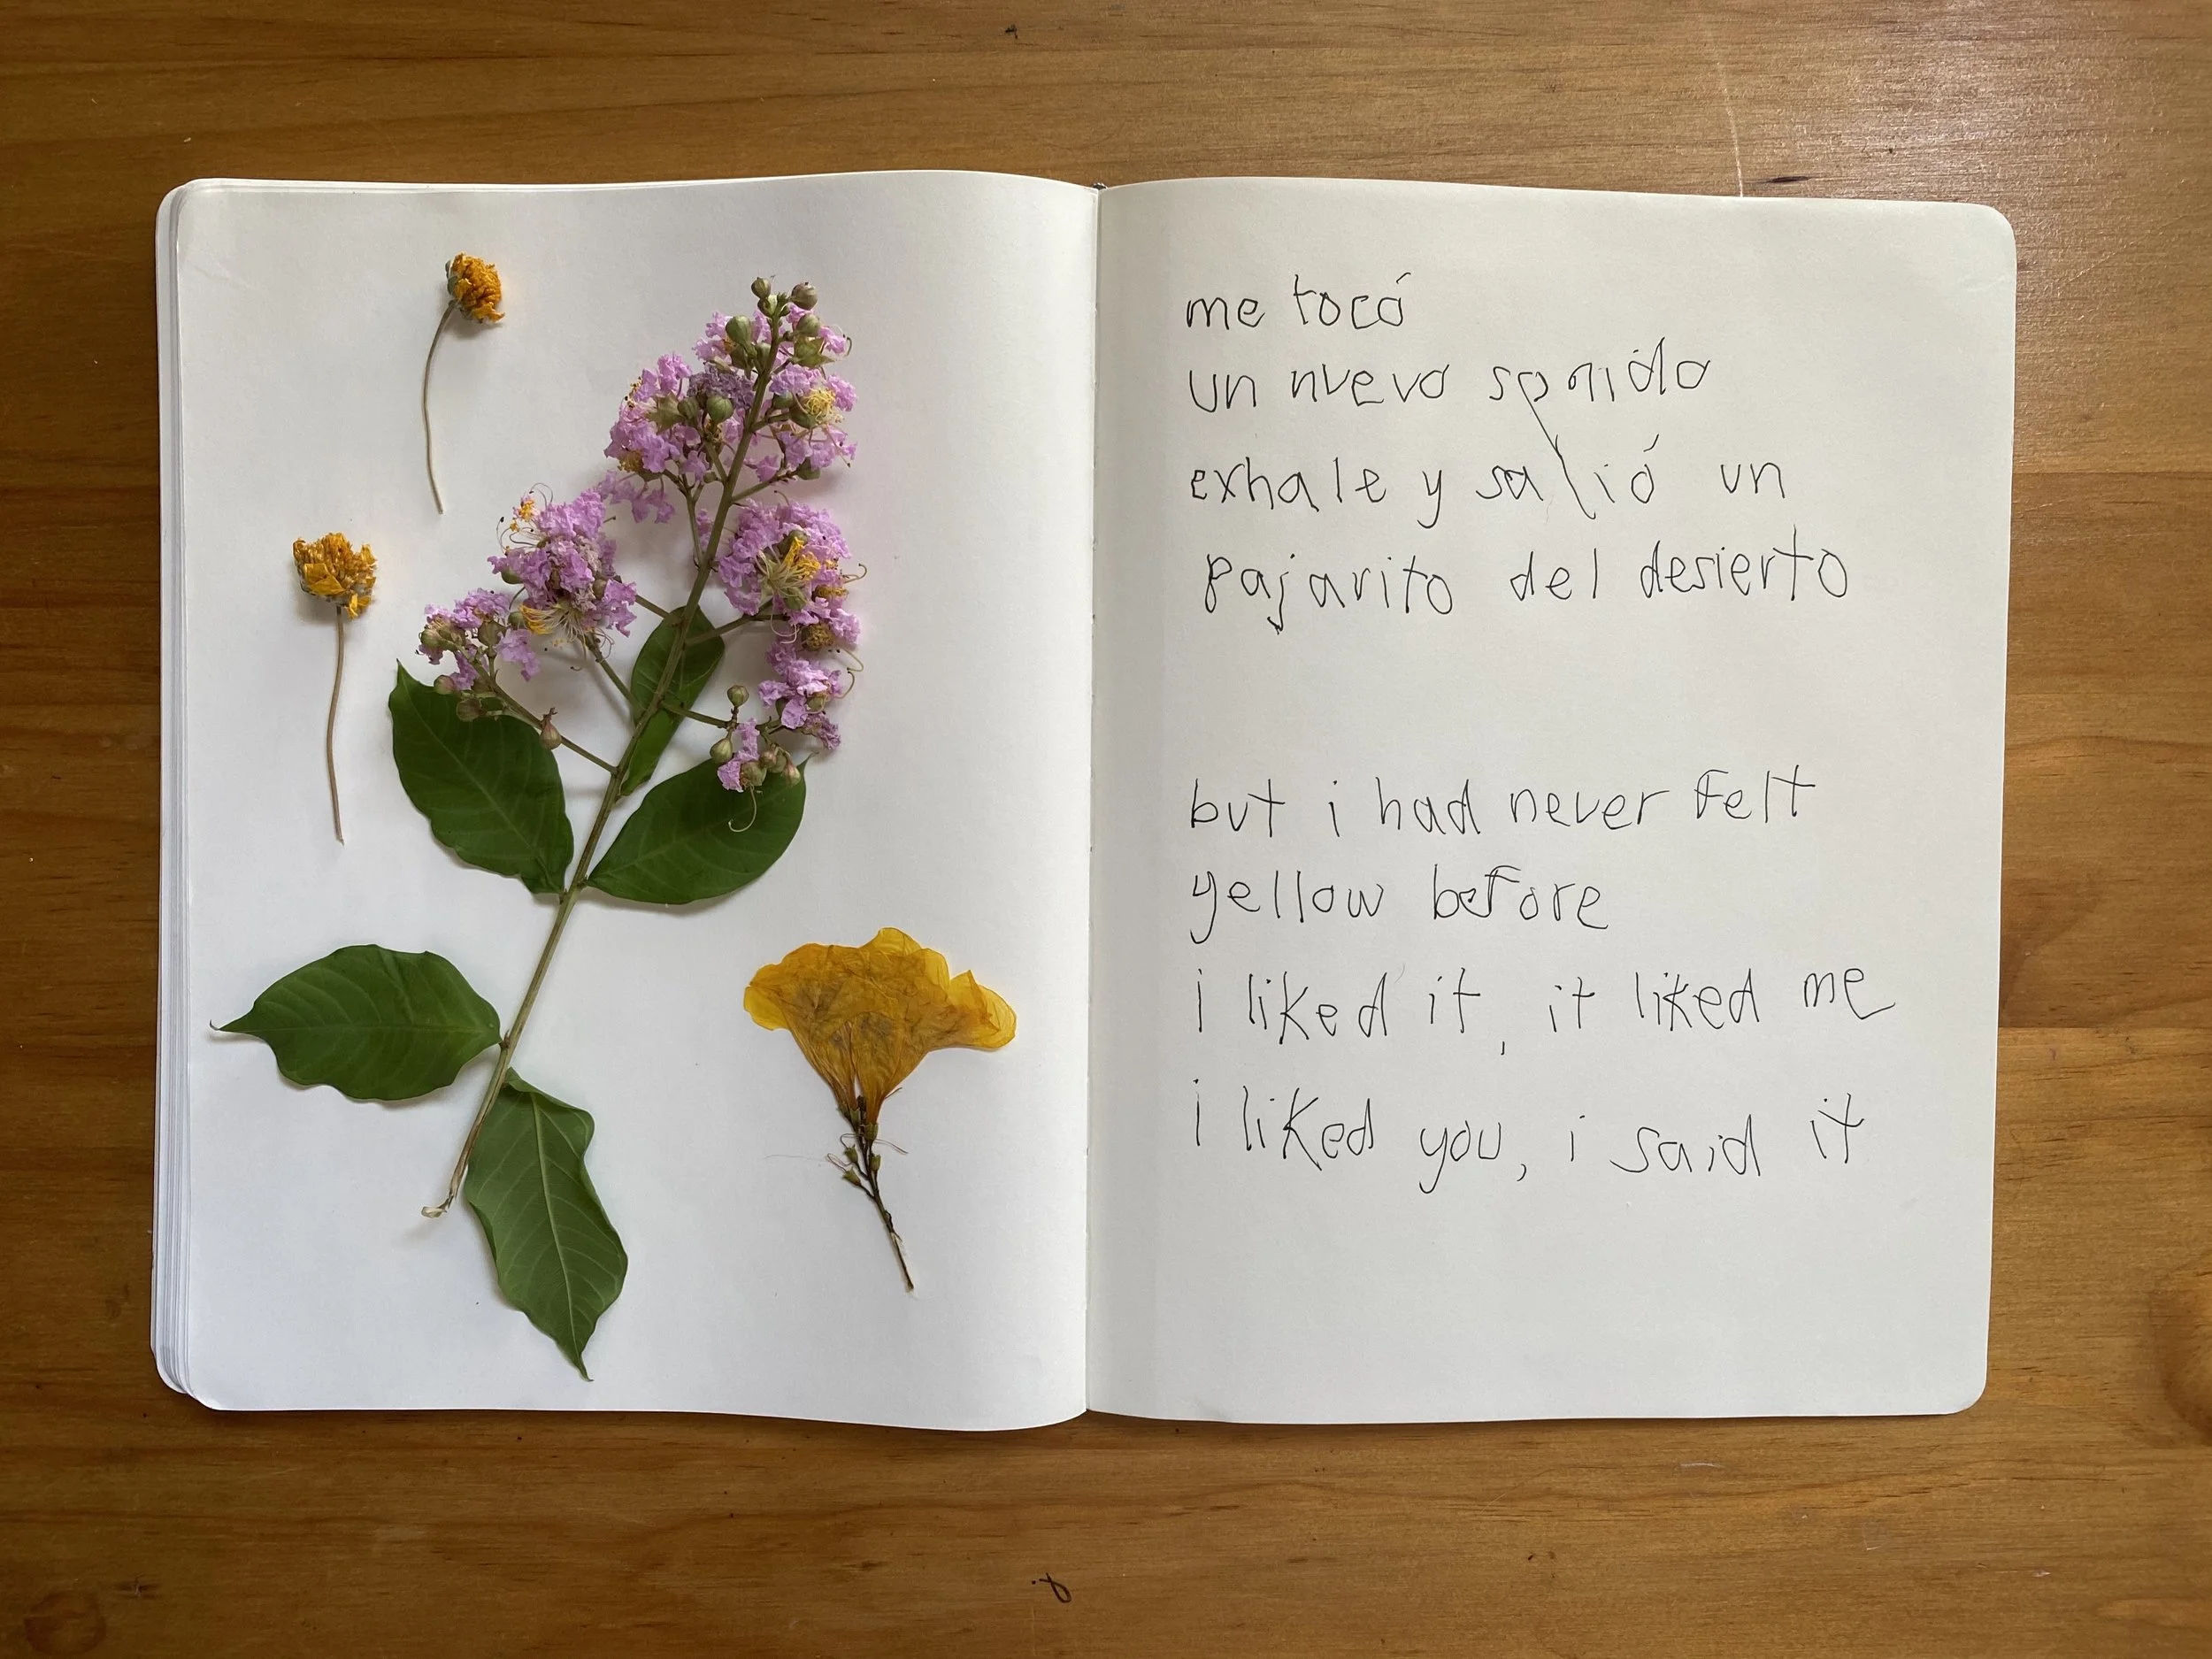 me tocó
un nuevo sonido
exhale y salió un
pajarito del desierto
but i had never felt
yellow before
i liked it, it liked me
i liked you, i said it